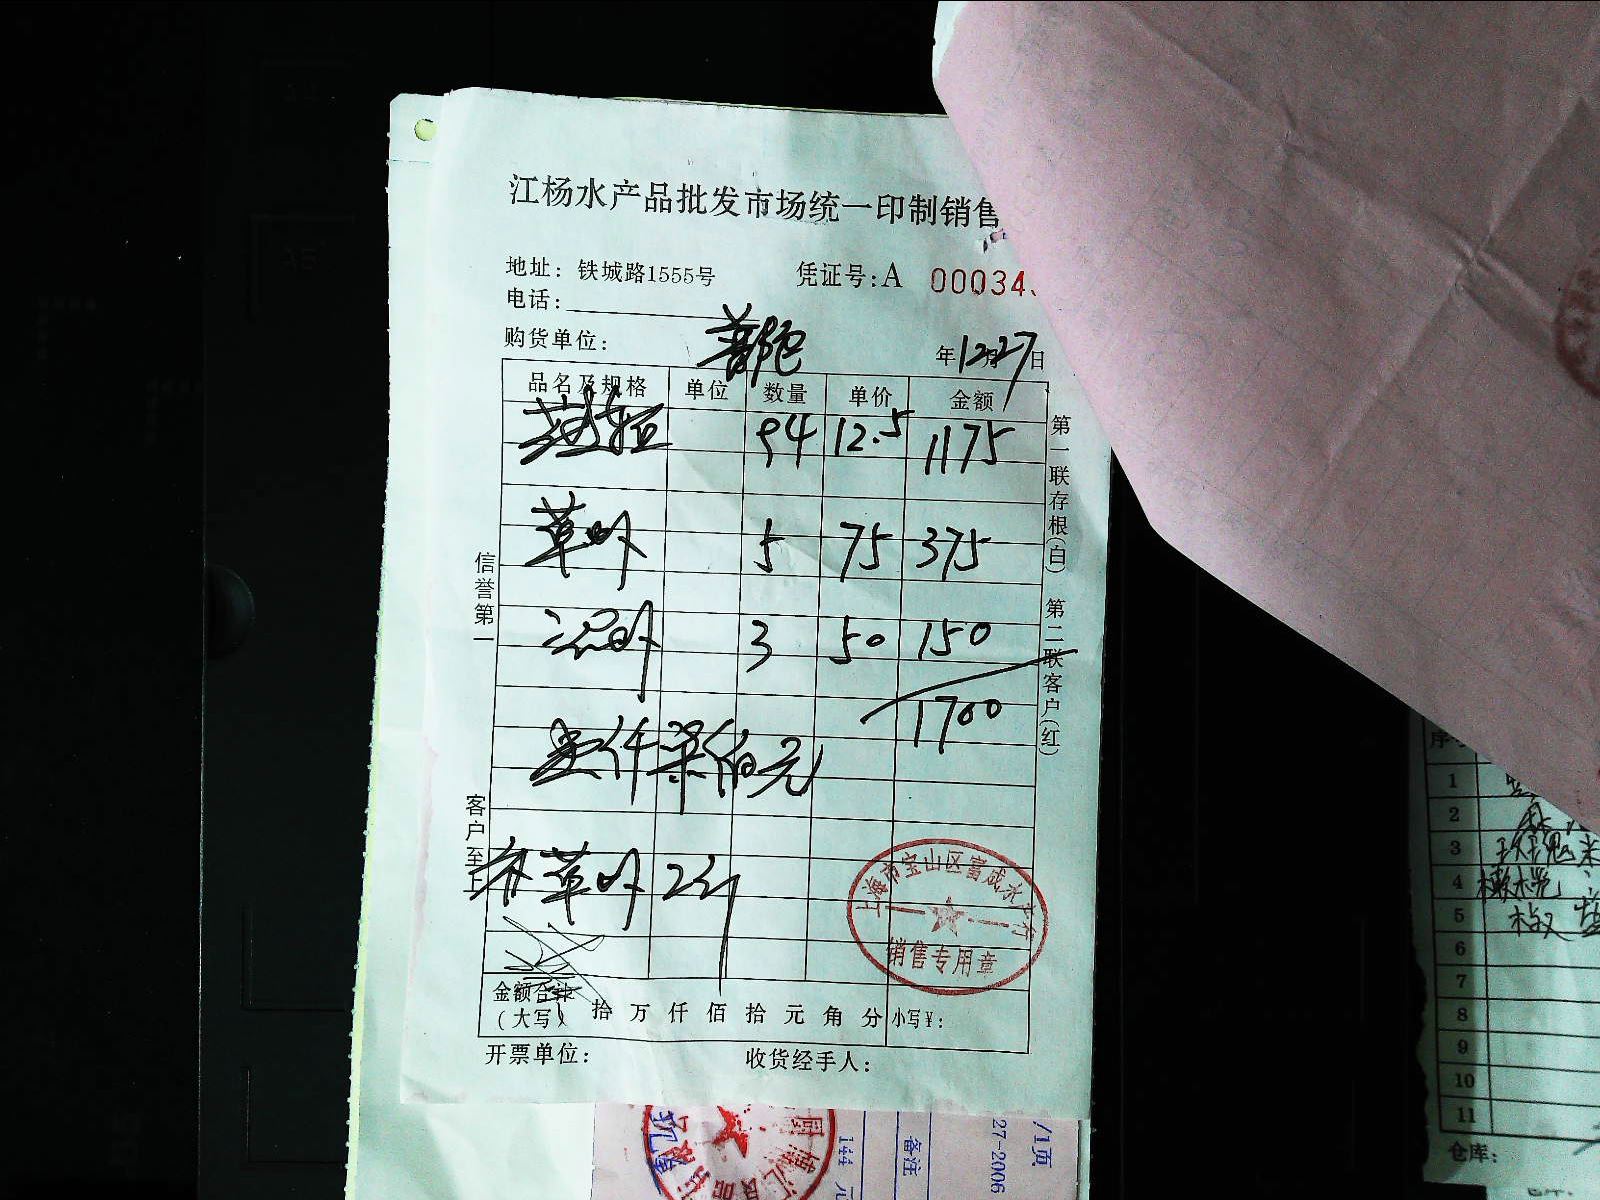 江杨水产品批发市场统一印制销售
地址: 铁城路1555号
凭证号:A 00034
电话:
购货单位: 普陀
年12月27日
品名及规格 单位 数量 单价 金额
94 12.5 1175
草虾 5 75 375
3 50 150
1700
壹仟柒佰元
草虾
信誉第一
客户至上
第一联存根(白) 第二联客户(红)
上海市宝山区富成水产行
销售专用章
金额合计
(大写) 拾 万 仟 佰 拾 元 角 分 小写¥:
开票单位: 收货经手人:
/1页
27-2006
备注
144 元
1
2
3
4
5
6
7
8
9
10
11
仓库: